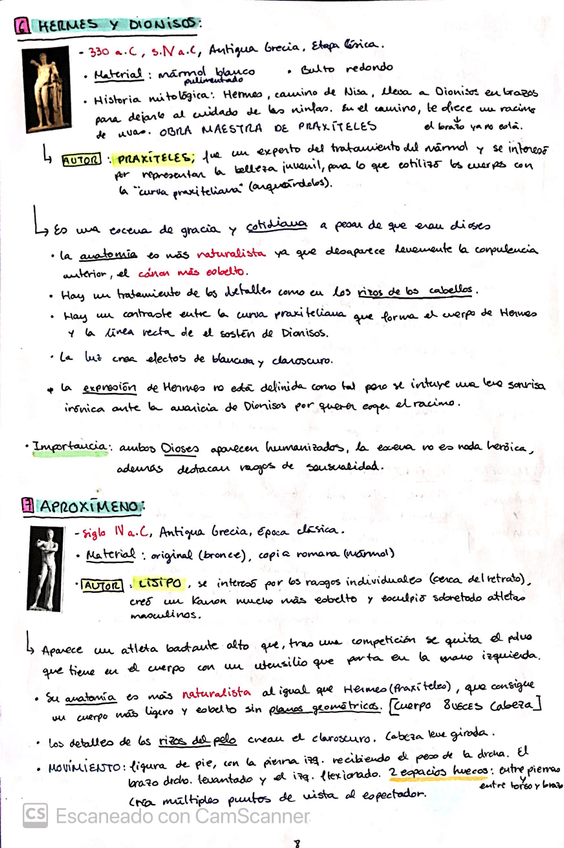 6 HERMES Y DIONISOS:
- 330 a.C, s.IV a.C, Antigua Grecia, Etapa Clásica.
• Material: mármol blanco pulimentado • Bulto redondo
• Historia mitológica: Hermes, camino de Nisa, lleva a Dionisos en brazos
para dejarlo al cuidado de las ninfas. En el camino, le ofrece un racimo
de uvas. OBRA MAESTRA DE PRAXÍTELES el brazo ya no está.
AUTOR: PRAXÍTELES; fue un experto del tratamiento del mármol y se interesó
por representar la belleza juvenil, para lo que estilizó los cuerpos con
la "curva praxiteliana" (arqueándolos).
Es una escena de gracia y cotidiana a pesar de que eran dioses
• La anatomía es más naturalista ya que desaparece levemente la corpulencia
anterior, el cánon más esbelto.
• Hay un tratamiento de los detalles como en los rizos de los cabellos.
• Hay un contraste entre la curva praxiteliana que forma el cuerpo de Hermes
y la línea recta de el sostén de Dionisos.
• La luz crea efectos de blancura y claroscuro.
• La expresión de Hermes no está definida como tal pero se intuye una leve sonrisa
irónica ante la avaricia de Dionisos por querer coger el racimo.
• Importancia: ambos Dioses aparecen humanizados, la escena no es nada heróica,
además destacan rasgos de sensualidad.
7 APROXÍMENO:
- Siglo IV a.C, Antigua Grecia, Época clásica.
• Material: original (bronce), copia romana (mármol)
• AUTOR: LISIPO, se interesó por los rasgos individuales (cerca del retrato),
creó un Kanon mucho más esbelto y esculpió sobretodo atletas
masculinos.
Aparece un atleta bastante alto que, tras una competición se quita el polvo
que tiene en el cuerpo con un utensilio que porta en la mano izquierda.
• Su anatomía es más naturalista al igual que Hermes (Praxíteles), que consigue
un cuerpo más ligero y esbelto sin planos geométricos. [Cuerpo 8 veces cabeza]
• Los detalles de los rizos del pelo crean el claroscuro. Cabeza leve girada.
• MOVIMIENTO: figura de pie, con la pierna izq. recibiendo el peso de la drcha. El
brazo drcho. levantado y el izq. flexionado. 2 espacios huecos: entre piernas
entre torso y brazo
Crea múltiples puntos de vista al espectador.
CS Escaneado con CamScanner
8